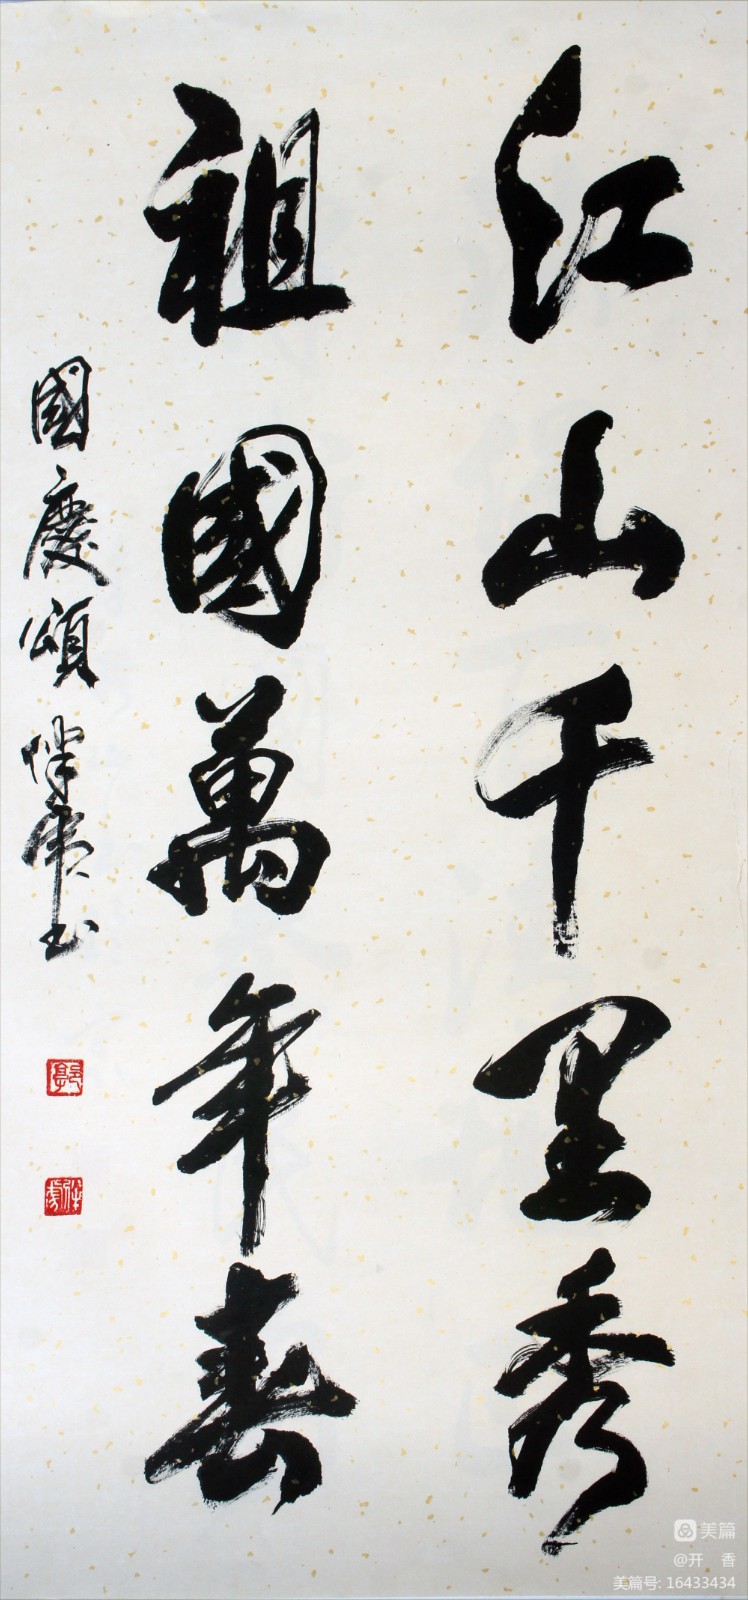 江山千里秀
祖國萬年春
國慶頌 书
美篇
@开 香
美篇号: 16433434